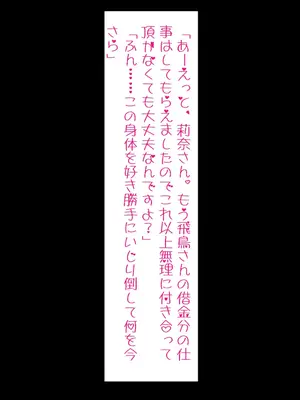 「あーえっと、莉奈さん。もう飛鳥さんの借金分の仕
事はしてもらえましたのでこれ以上無理に付き合って
頂かなくても大丈夫なんですよ？」
「ふん……この身体を好き勝手にいじり倒して何を今
さら」